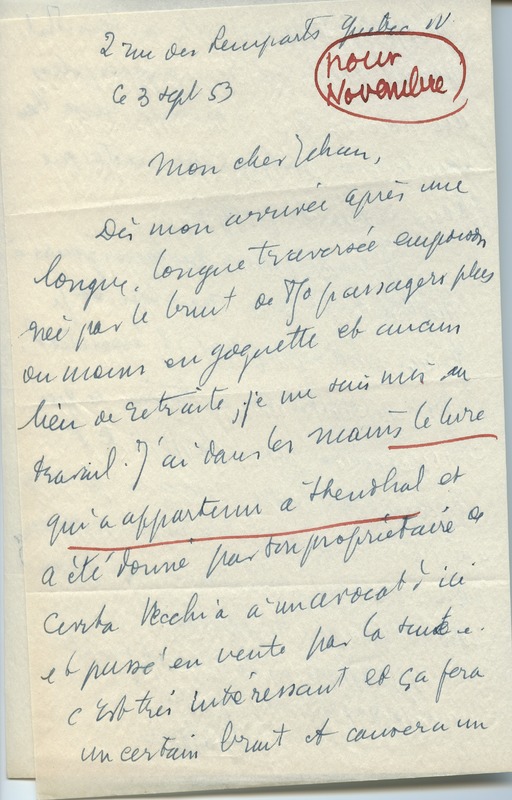 2 rue des Remparts Quebec
Ce 3 sept 53
pour
Novembre
Mon cher Jehan,
Dès mon arrivée après une
longue, longue traversée empoison
née par le bruit de 850 passagers plus
ou moins en goguette et aucun
lieu de retraite, je me suis mis au
travail. J'ai dans les mains le livre
qui a appartenu à Stendhal et
a été donné par son propriétaire à
Civita Vecchia à un avocat d'ici
et passé en vente par la suite.
C'est très intéressant et ça fera
un certain bruit et causera un